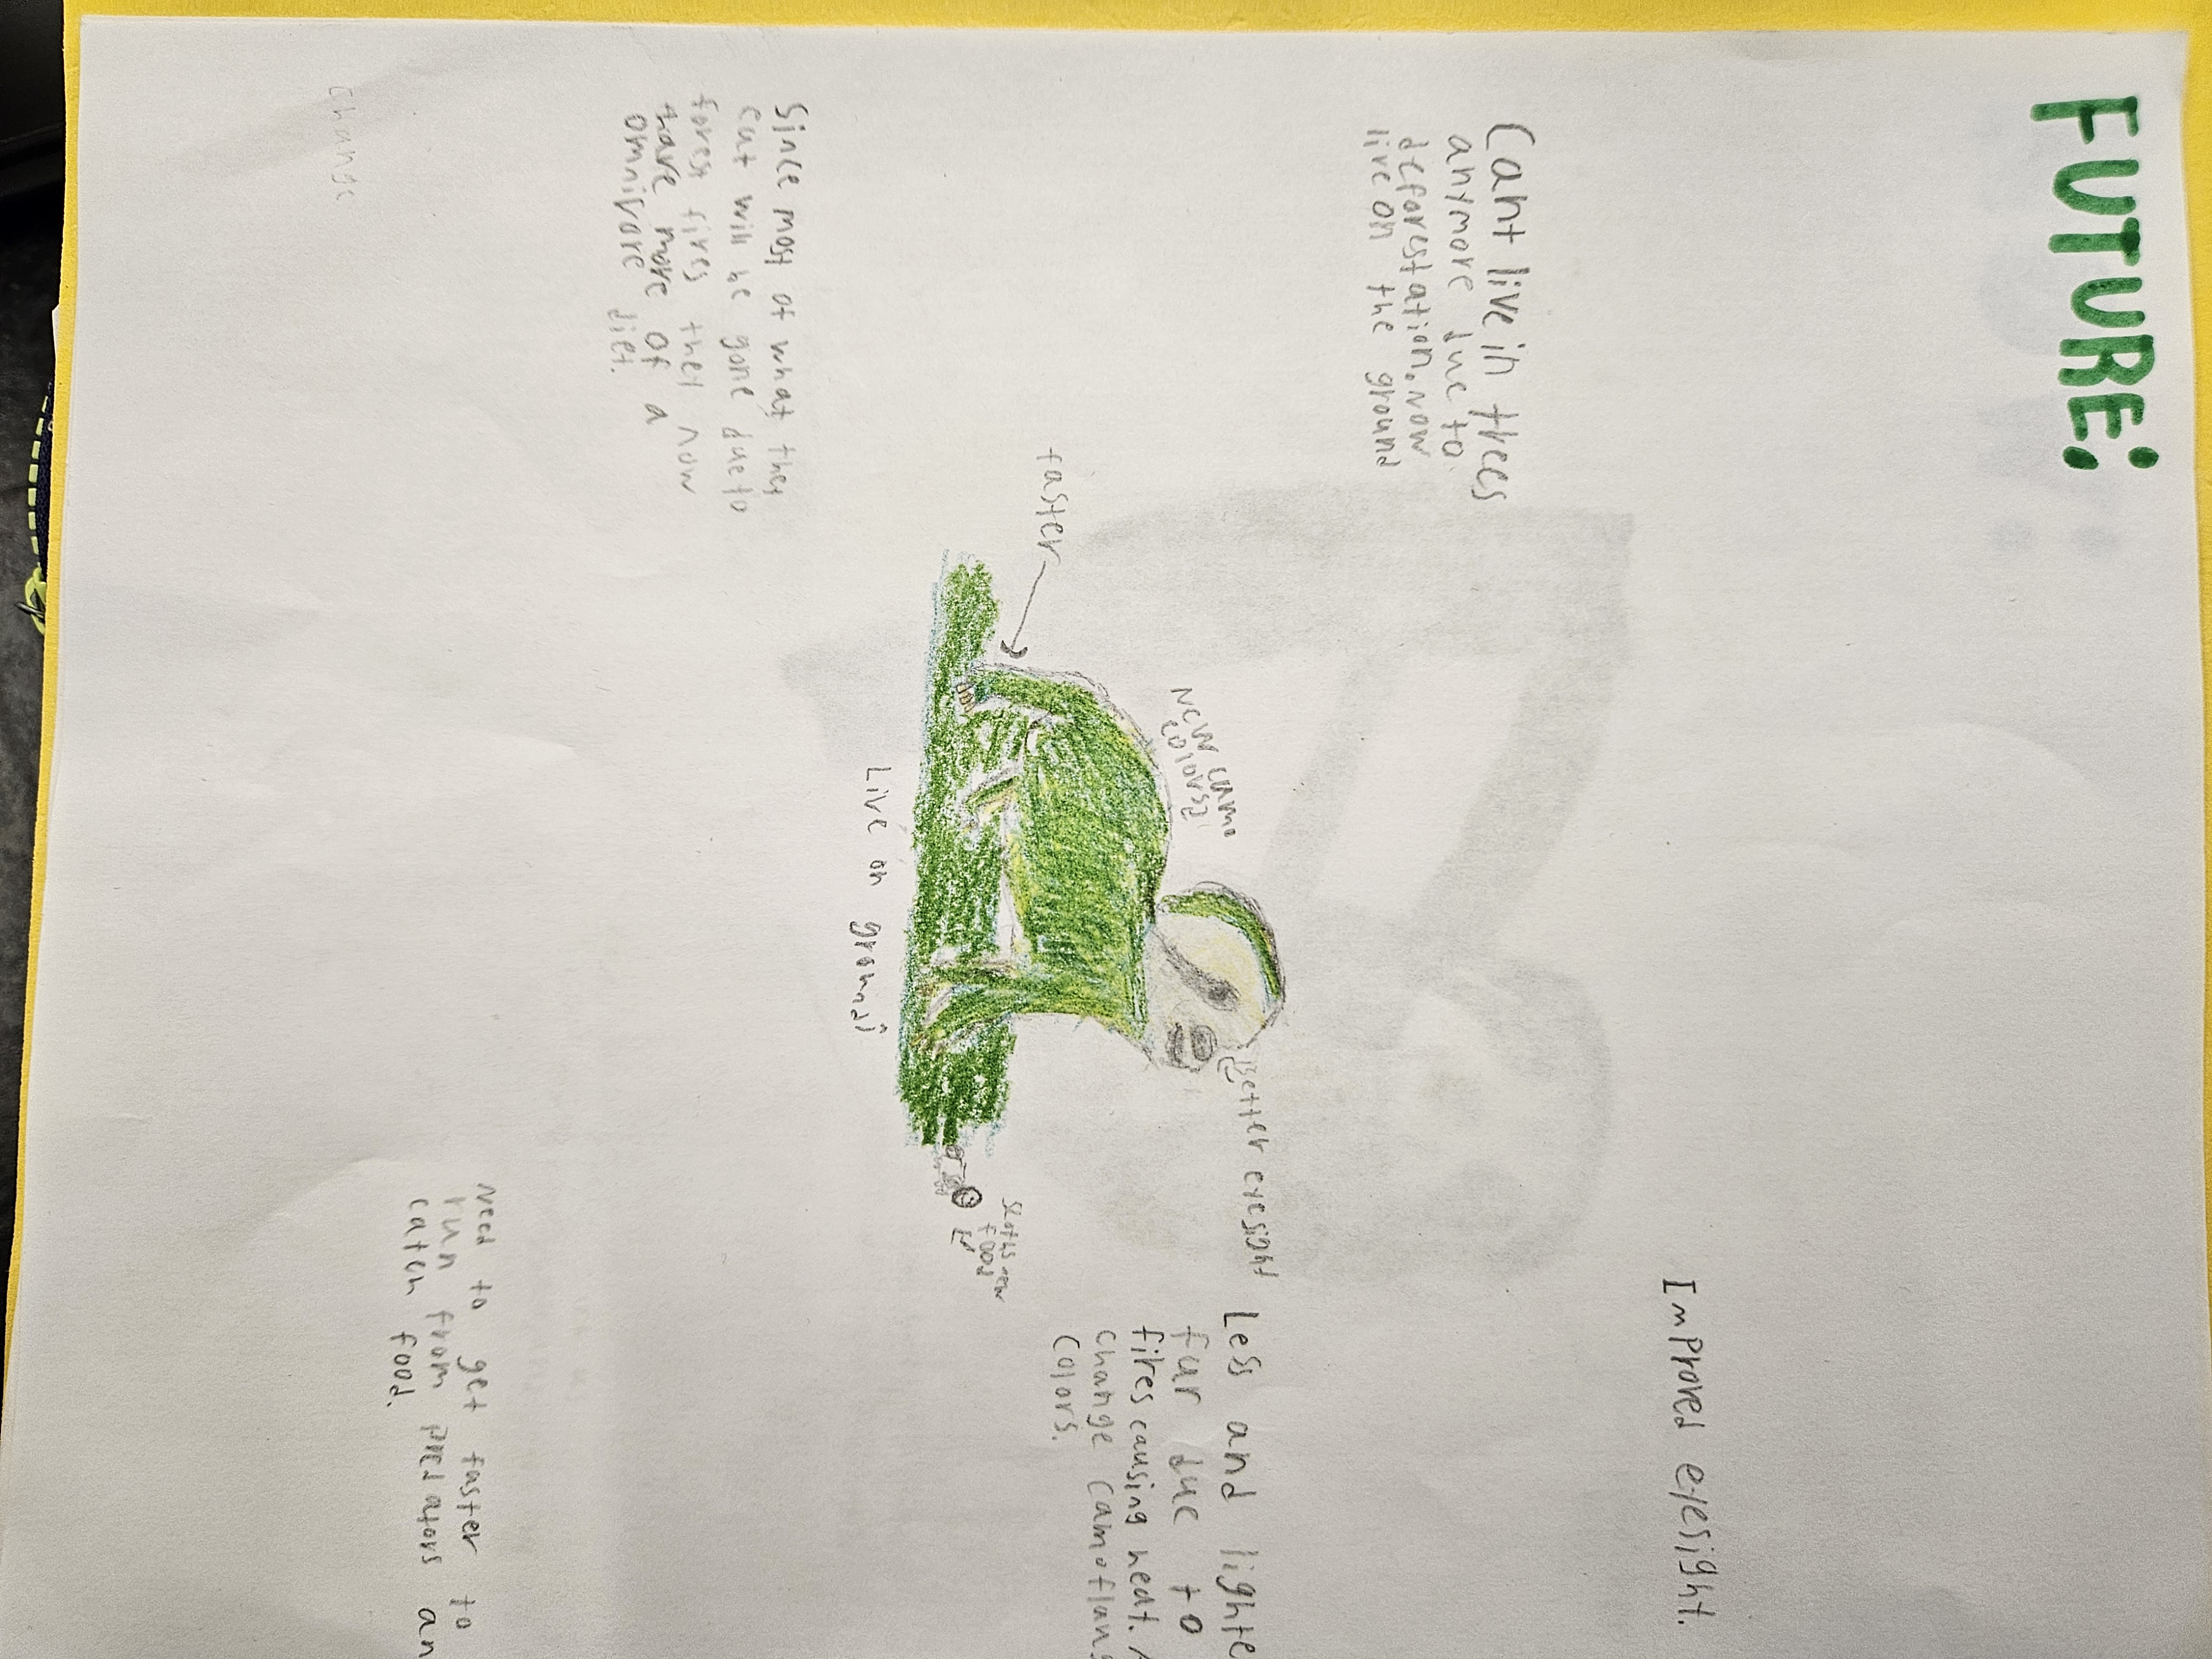 FUTURE:
Cant live in trees
anymore due to
deforestation. now
live on the ground
Improved eyesight.
Better eyesight
New camo
colors!
faster
Less and lighte
fur due to
fires causing heat. A
change camoflaug
colors.
Sloths new
food
Live on ground!
Since most of what they
eat will be gone due to
forest fires they now
have more of a
omnivore diet.
Need to get faster to
run from predators an
catch food.
change